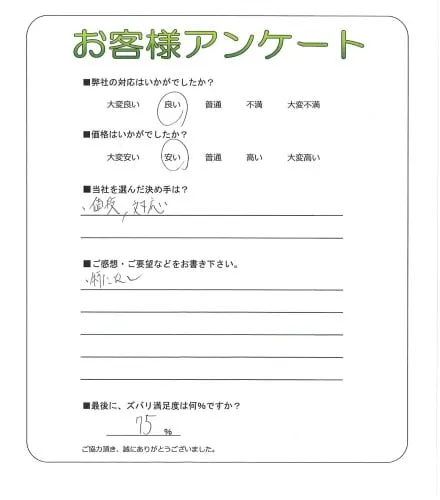 お客様アンケート
■弊社の対応はいかがでしたか?
大変良い 良い 普通 不満 大変不満
■価格はいかがでしたか?
大変安い 安い 普通 高い 大変高い
■当社を選んだ決め手は?
・値段、対応
■ご感想・ご要望などをお書き下さい。
・特になし
■最後に、ズバリ満足度は何%ですか?
75 %
ご協力頂き、誠にありがとうございました。